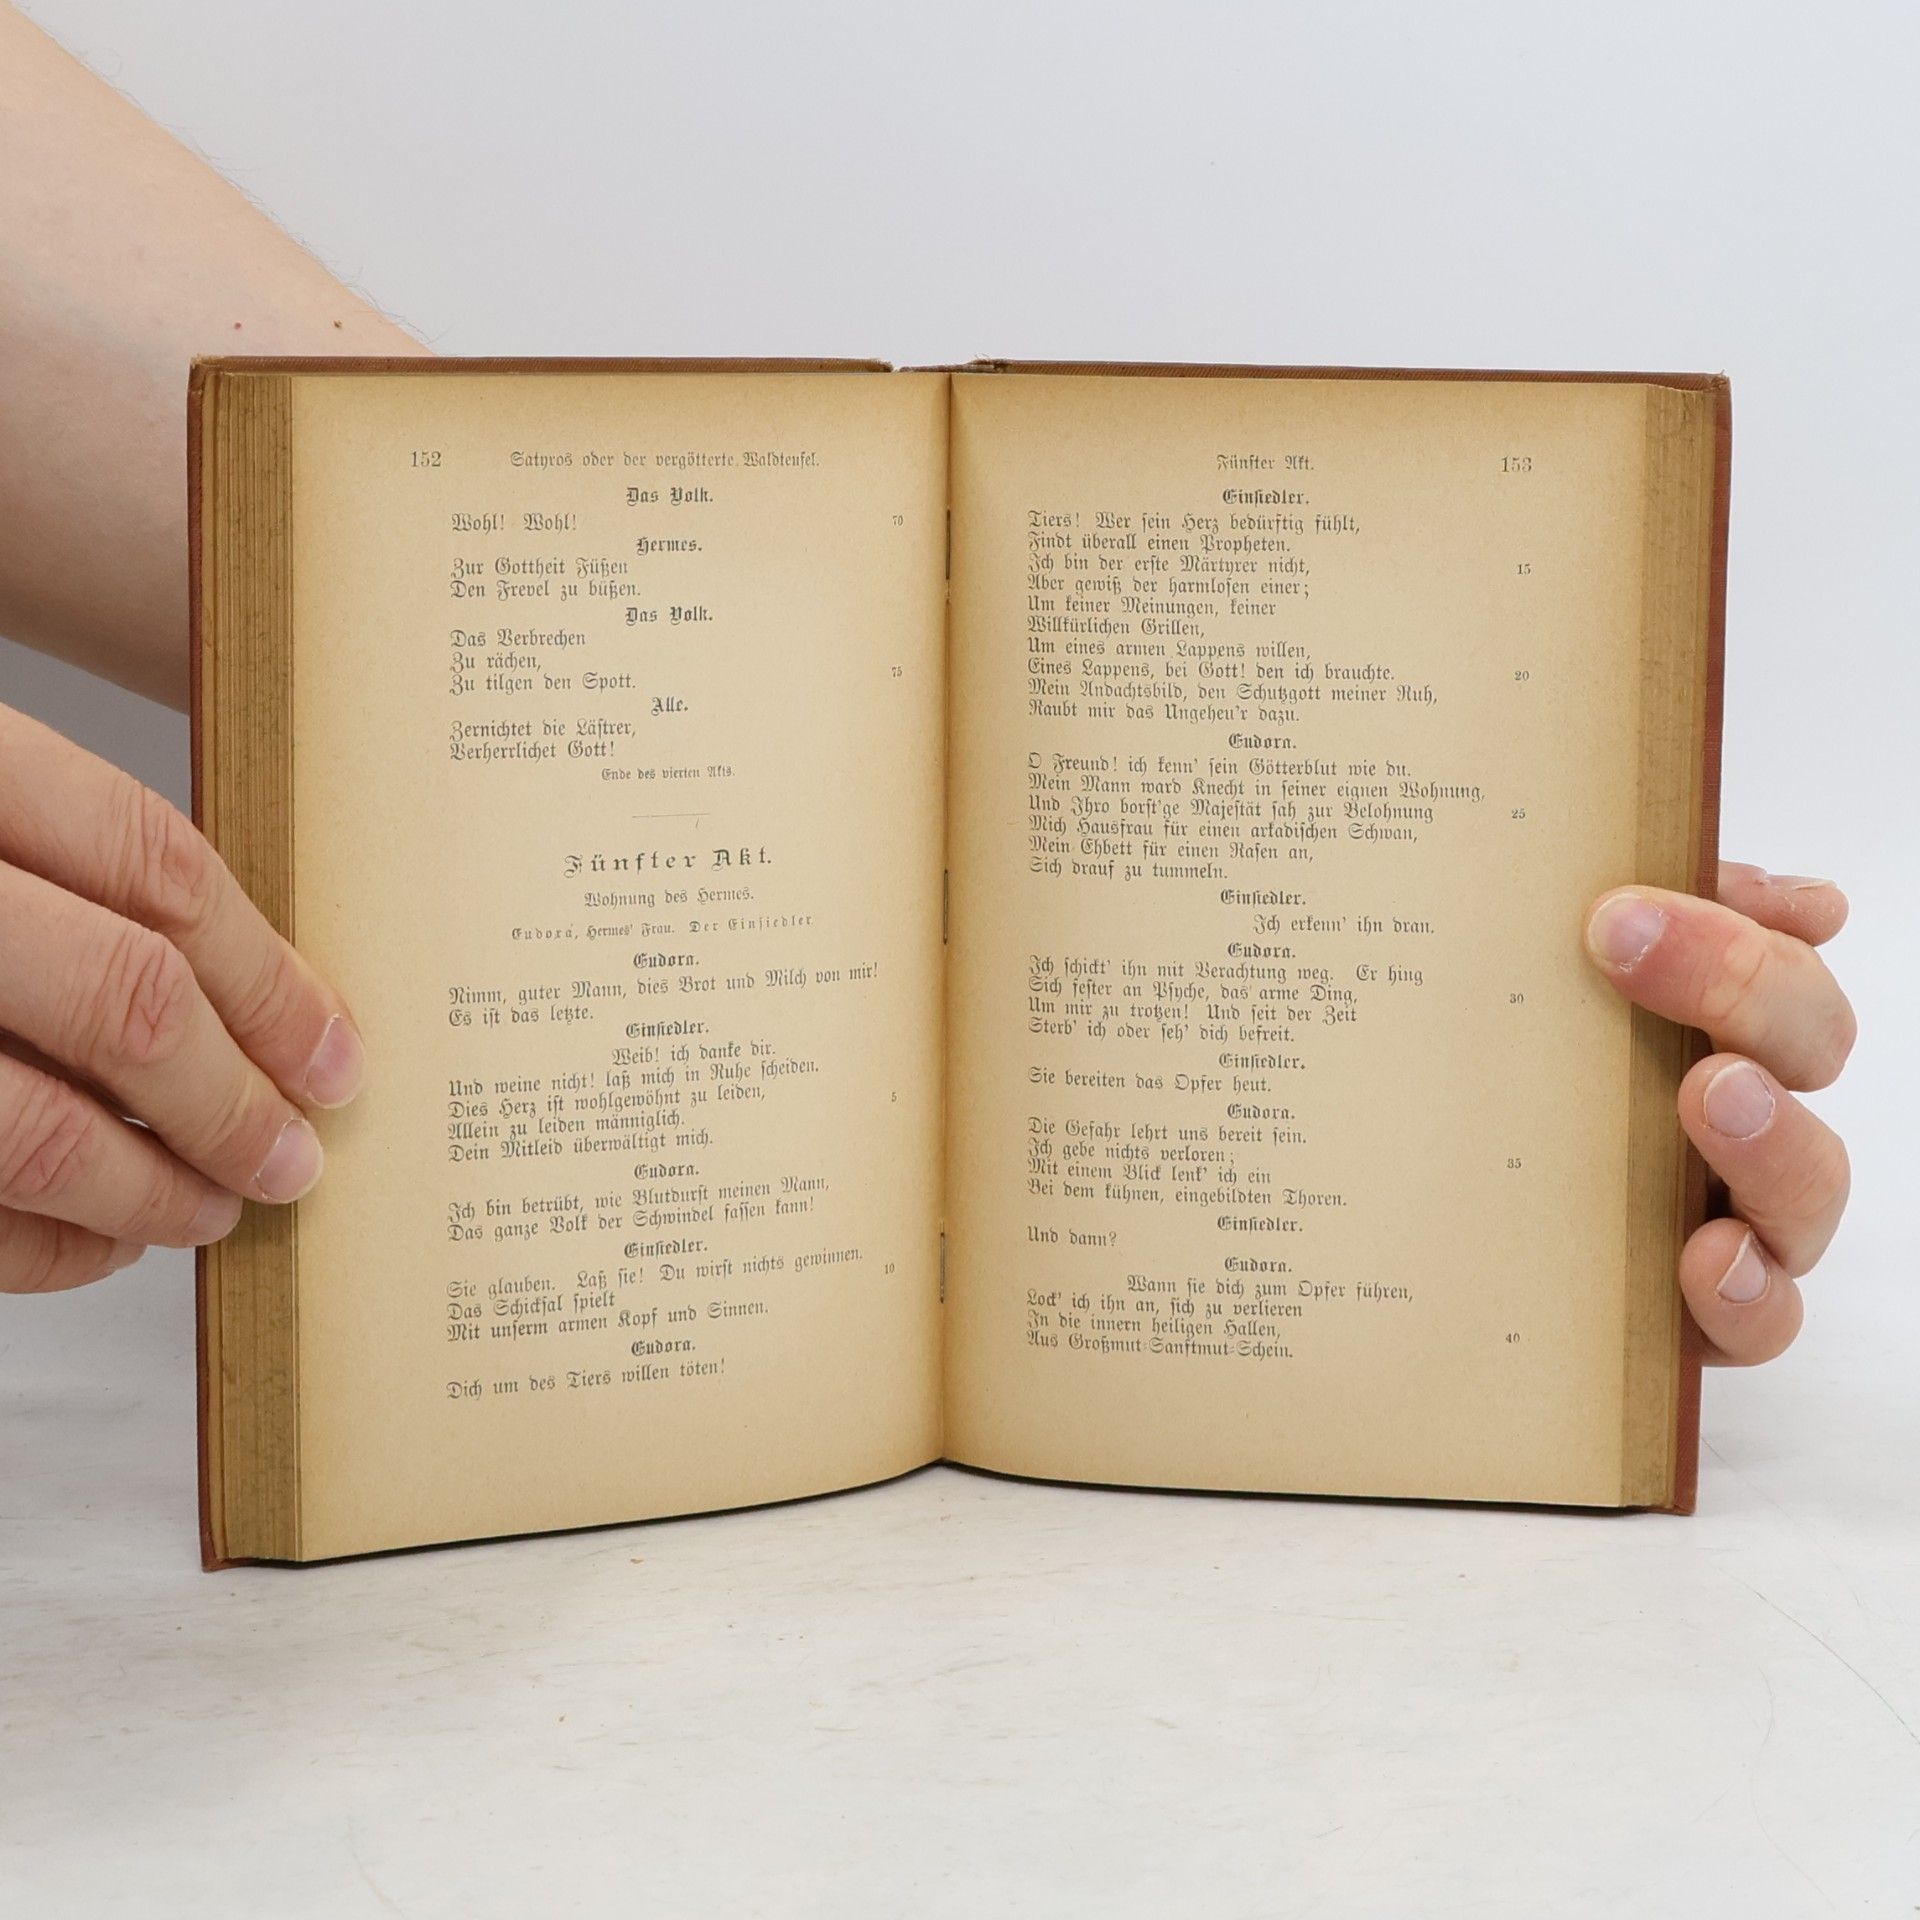 152 Satyros oder der vergötterte Waldteufel.
Das Volk.
Wohl! Wohl! 70
Hermes.
Zur Gottheit Füßen
Den Frevel zu büßen.
Das Volk.
Das Verbrechen
Zu rächen,
Zu tilgen den Spott. 75
Alle.
Zernichtet die Lästrer,
Verherrlichet Gott!
Ende des vierten Akts.
Fünfter Akt.
Wohnung des Hermes.
Eudora, Hermes' Frau. Der Einsiedler
Eudora.
Nimm, guter Mann, dies Brot und Milch von mir!
Es ist das letzte.
Einsiedler.
Weib! ich danke dir.
Und weine nicht! laß mich in Ruhe scheiden.
Dies Herz ist wohlgewöhnt zu leiden, 5
Allein zu leiden männiglich.
Dein Mitleid überwältigt mich.
Eudora.
Ich bin betrübt, wie Blutdurst meinen Mann,
Das ganze Volk der Schwindel fassen kann!
Einsiedler.
Sie glauben. Laß sie! Du wirst nichts gewinnen. 10
Das Schicksal spielt
Mit unserm armen Kopf und Sinnen.
Eudora.
Dich um des Tiers willen töten!
Fünfter Akt. 153
Einsiedler.
Tiers! Wer sein Herz bedürftig fühlt,
Findt überall einen Propheten.
Ich bin der erste Märtyrer nicht, 15
Aber gewiß der harmlosen einer;
Um keiner Meinungen, keiner
Willkürlichen Grillen,
Um eines armen Lappens willen,
Eines Lappens, bei Gott! den ich brauchte. 20
Mein Andachtsbild, den Schutzgott meiner Ruh,
Raubt mir das Ungeheu'r dazu.
Eudora.
O Freund! ich kenn' sein Götterblut wie du.
Mein Mann ward Knecht in seiner eignen Wohnung,
Und Ihro borst'ge Majestät sah zur Belohnung 25
Mich Hausfrau für einen arkadischen Schwan,
Mein Ehbett für einen Rasen an,
Sich drauf zu tummeln.
Einsiedler.
Ich erkenn' ihn dran.
Eudora.
Ich schickt' ihn mit Verachtung weg. Er hing
Sich fester an Psyche, das arme Ding, 30
Um mir zu trotzen! Und seit der Zeit
Sterb' ich oder seh' dich befreit.
Einsiedler.
Sie bereiten das Opfer heut.
Eudora.
Die Gefahr lehrt uns bereit sein.
Ich gebe nichts verloren; 35
Mit einem Blick lenk' ich ein
Bei dem kühnen, eingebildten Thoren.
Einsiedler.
Und dann?
Eudora.
Wann sie dich zum Opfer führen,
Lock' ich ihn an, sich zu verlieren
In die innern heiligen Hallen, 40
Aus Großmut-Sanftmut-Schein.